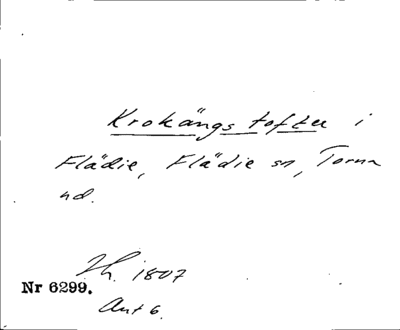 Krokängs toften i
Flädie, Flädie sn, Torna
hd.
Zh. 1807
Nr 6299.
Ant 6.